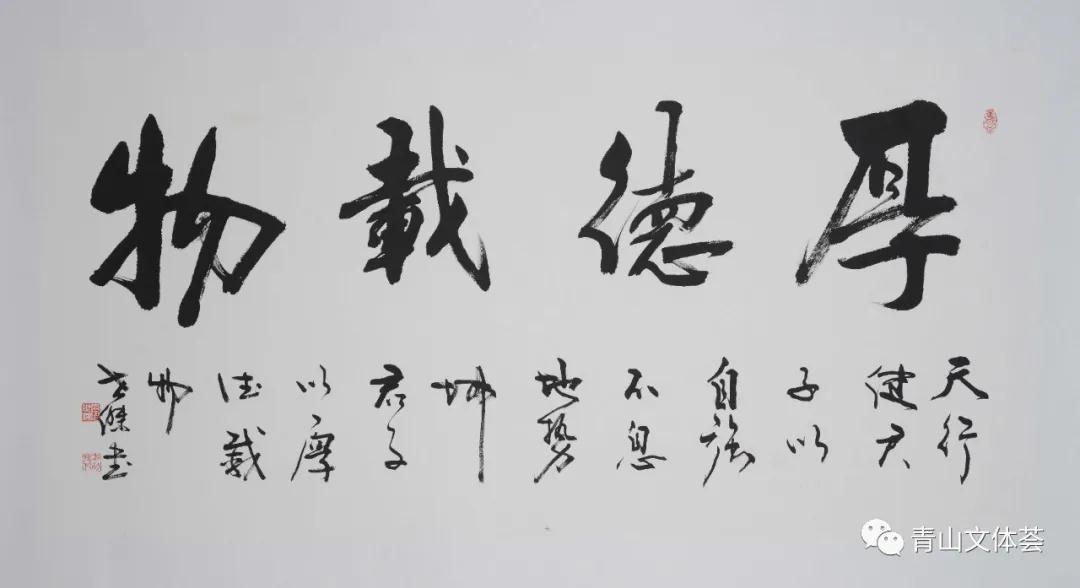 厚德載物
天行
健君
子以
自強
不息
地勢
坤
君子
以厚
德載
物
傑书
青山文体荟